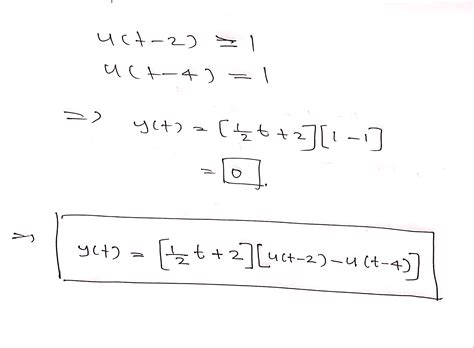 u(t-2) = 1
u(t-4) = 1
=> y(t) = [1/2 t + 2][1 - 1]
= 0.
=> y(t) = [1/2 t + 2][u(t-2) - u(t-4)]